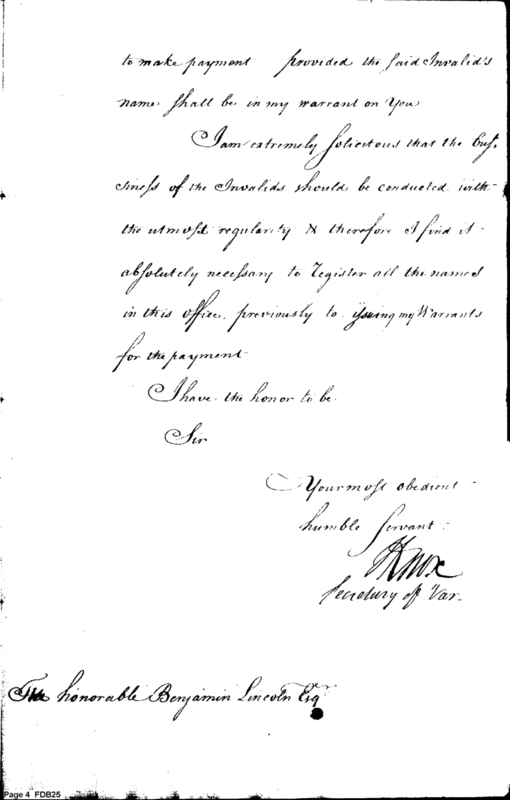 to make payment provided the said Invalid's
name shall be in my warrant on You
I am extremely solicitous that the Bus,
siness of the Invalids should be conducted with
the utmost regularity & therefore I find it
absolutely necessary to Register all the names
in this office, previously to issuing my Warrants
for the payment
I have the honor to be
Sir
Your most obedient
humble servant
HKnox
Secretary of War
The honorable Benjamin Lincoln Esqr
Page 4 FDB25